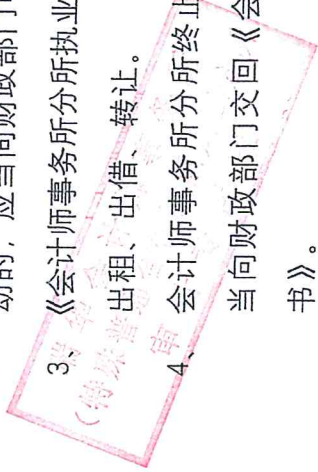 动的，应当向财政部门申
3、《会计师事务所分所执业
出租、出借、转让。
4、会计师事务所分所终止
当向财政部门交回《会
书》。